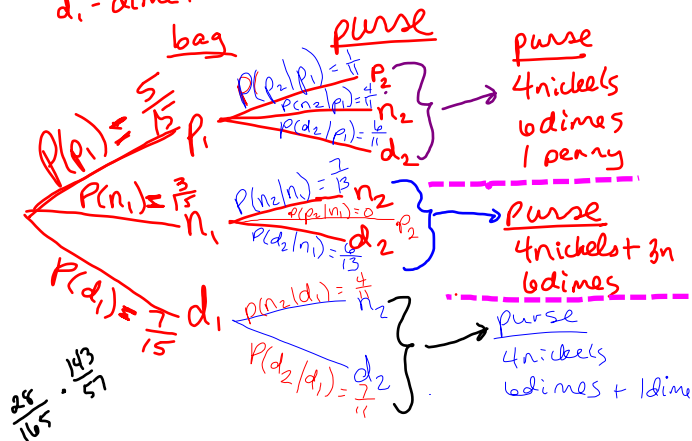 d₁ - dime
bag
purse
P(p₁) = 5/15
p₁
P(p₂/p₁) = 1/11
p₂
P(n₂/p₁) = 4/11
n₂
P(d₂/p₁) = 6/11
d₂
purse
4nickels
6dimes
1 penny
P(n₁) = 3/15
n₁
P(n₂/n₁) = 7/13
n₂
P(p₂/n₁) = 0
p₂
P(d₂/n₁) = 6/13
d₂
purse
4nickels + 3n
6dimes
P(d₁) = 7/15
d₁
P(n₂/d₁) = 4/11
n₂
P(d₂/d₁) = 7/11
d₂
purse
4nickels
6dimes + 1dime
28/165 · 143/57